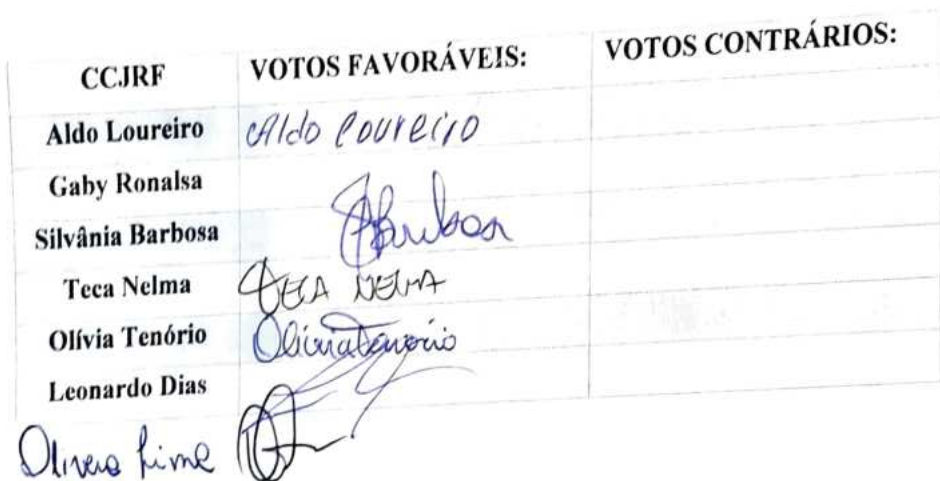 CCJRF VOTOS FAVORÁVEIS: VOTOS CONTRÁRIOS:
Aldo Loureiro Aldo Loureiro
Gaby Ronalsa
Silvânia Barbosa SBarbosa
Teca Nelma TECA NELMA
Olívia Tenório Olívia Tenório
Leonardo Dias
Oliveira Lima